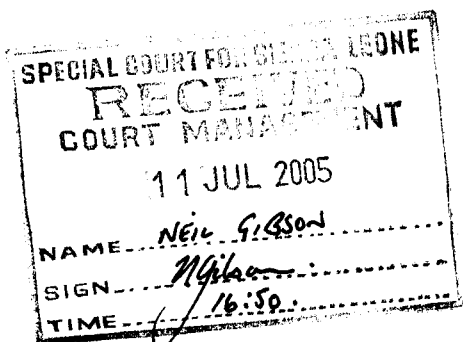 SPECIAL COURT FOR SIERRA LEONE
RECEIVED
COURT MANAGEMENT
11 JUL 2005
NAME NEIL GIBSON
SIGN NGibson
TIME 16:50.